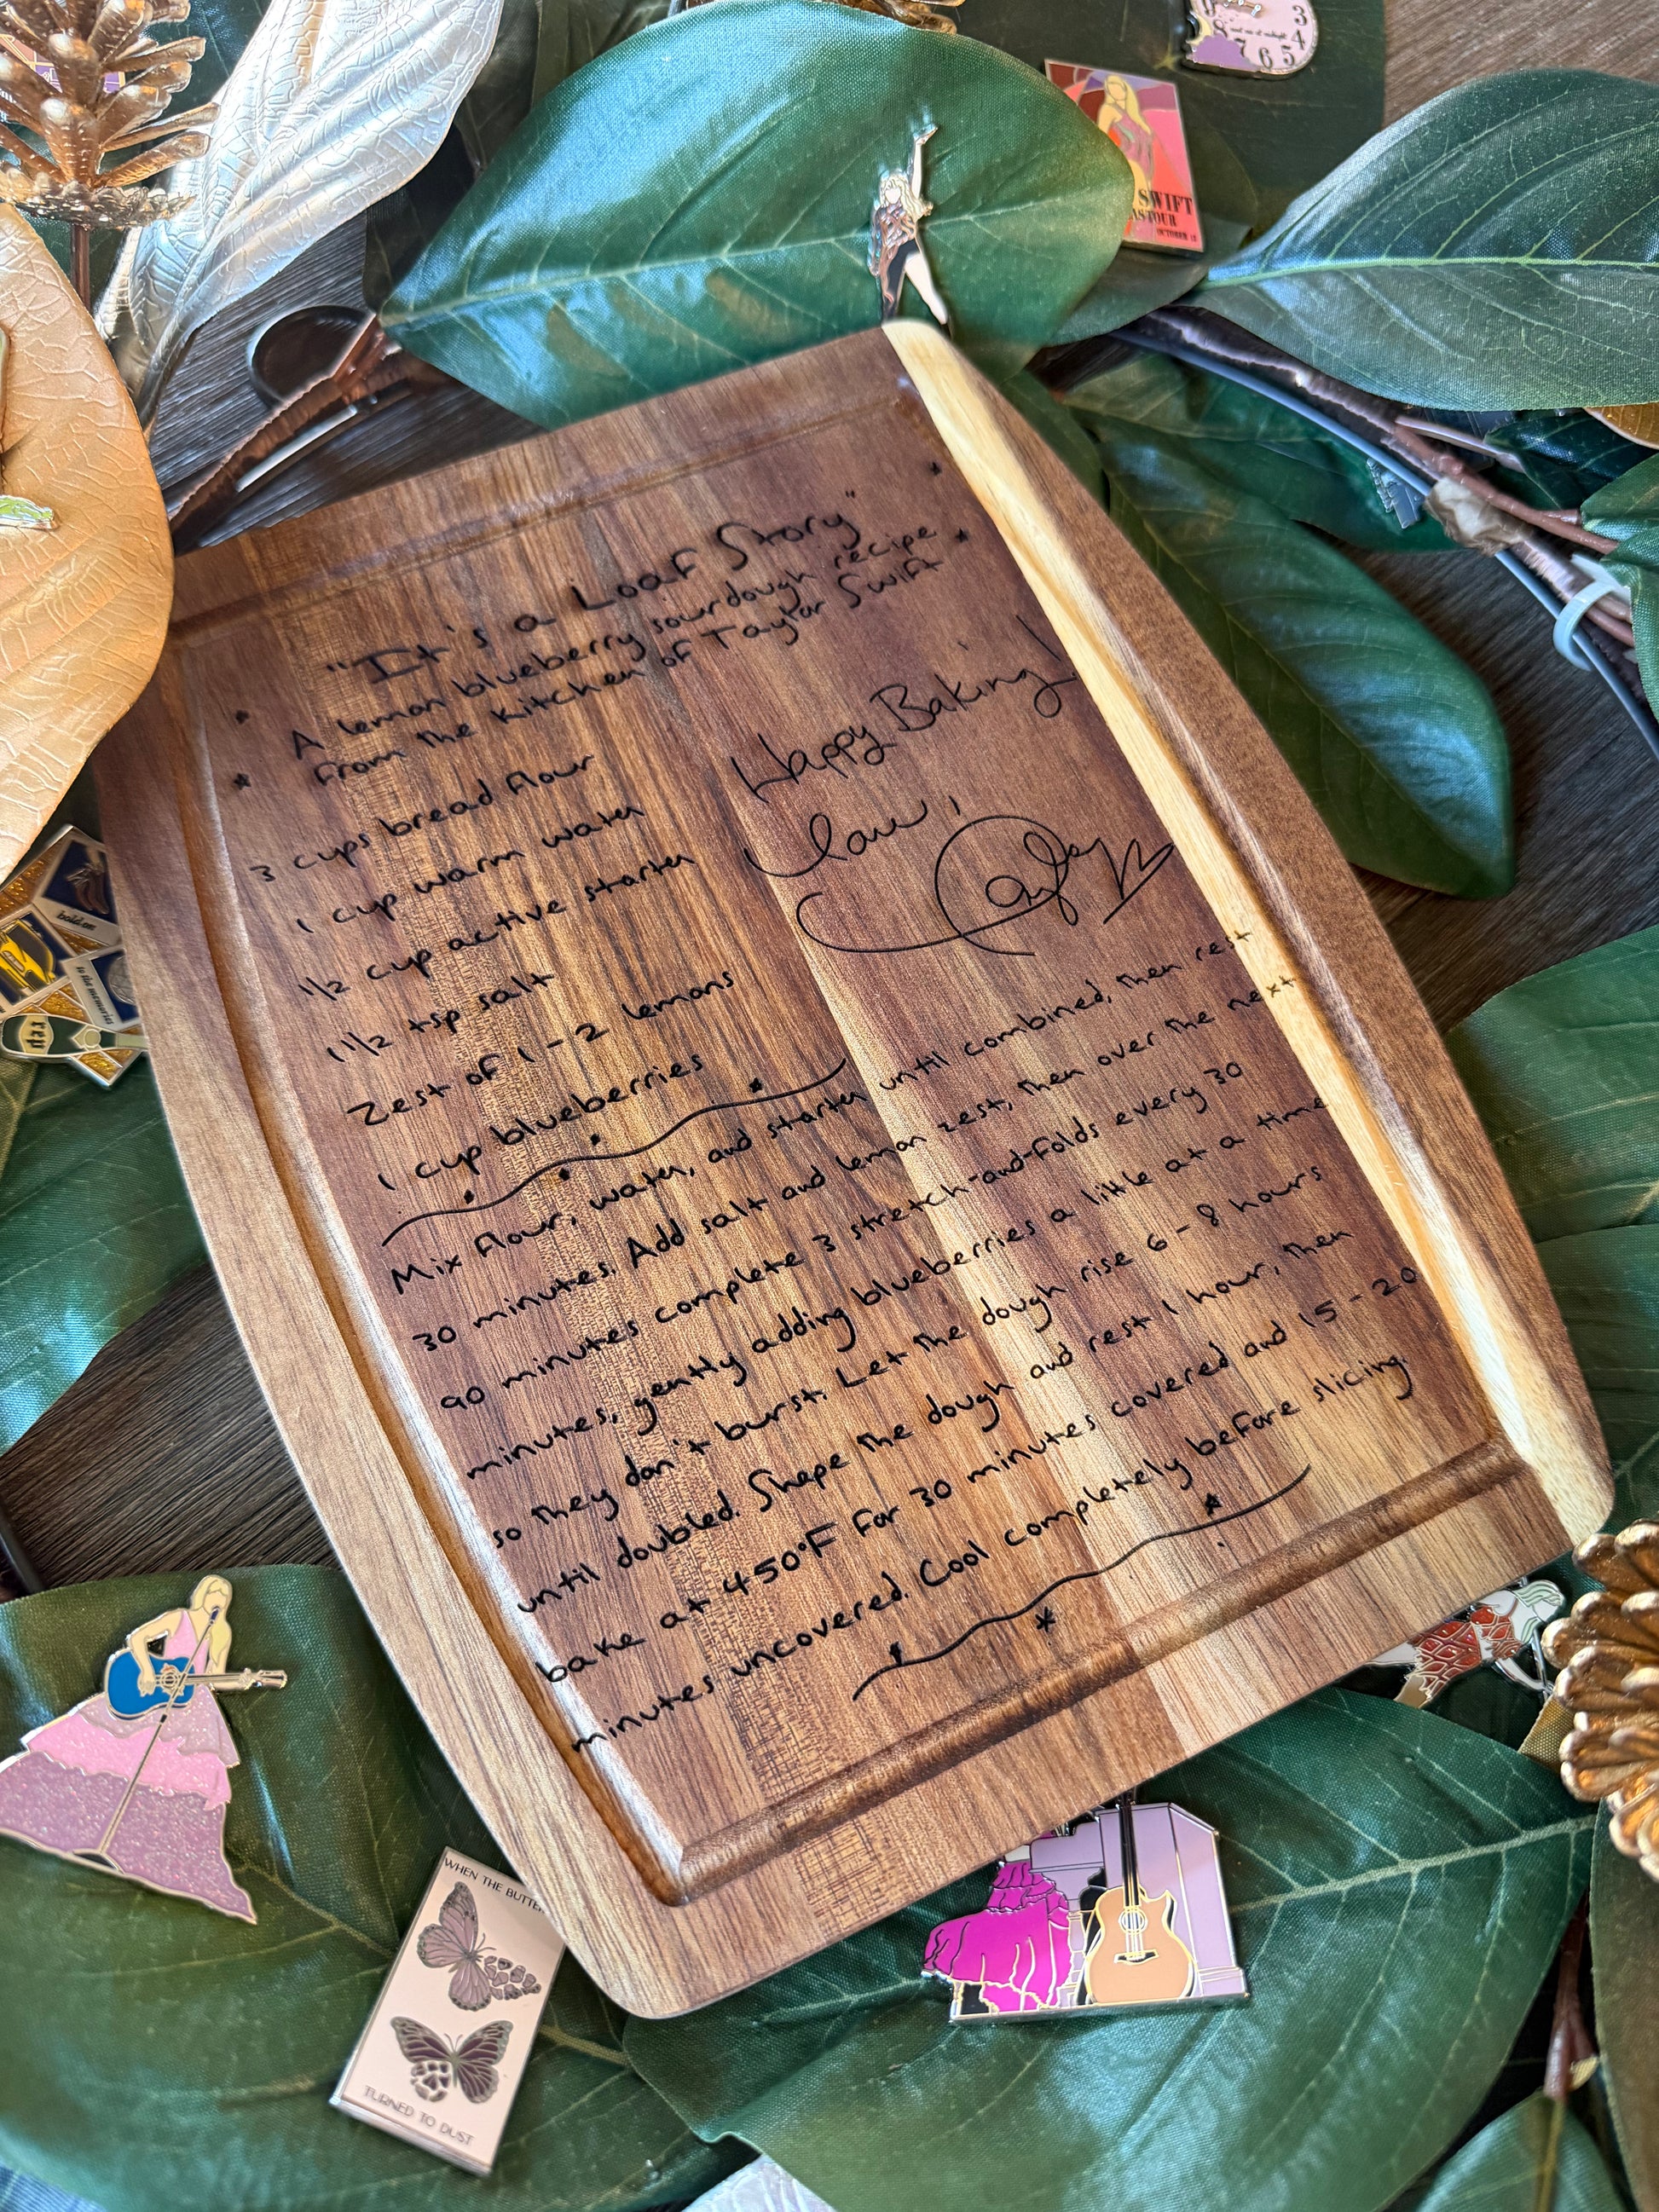 "It's a Loaf Story"
A lemon blueberry sourdough recipe
from the kitchen of Taylor Swift
3 cups bread flour
1 cup warm water
1/2 cup active starter
1 1/2 tsp salt
Zest of 1-2 lemons
1 cup blueberries
Happy Baking!
Love,
Taylor
Mix flour, water, and starter until combined, then rest
30 minutes. Add salt and lemon zest, then over the next
90 minutes complete 3 stretch-and-folds every 30
minutes, gently adding blueberries a little at a time
so they don't burst. Let the dough rise 6-8 hours
until doubled. Shape the dough and rest 1 hour, then
bake at 450°F for 30 minutes covered and 15-20
minutes uncovered. Cool completely before slicing.
3
4
5
6
7
8
SWIFT
AS TOUR
OCTOBER 13
hold on
to the memories
rep
WHEN THE BUTTE
TURNED TO DUST